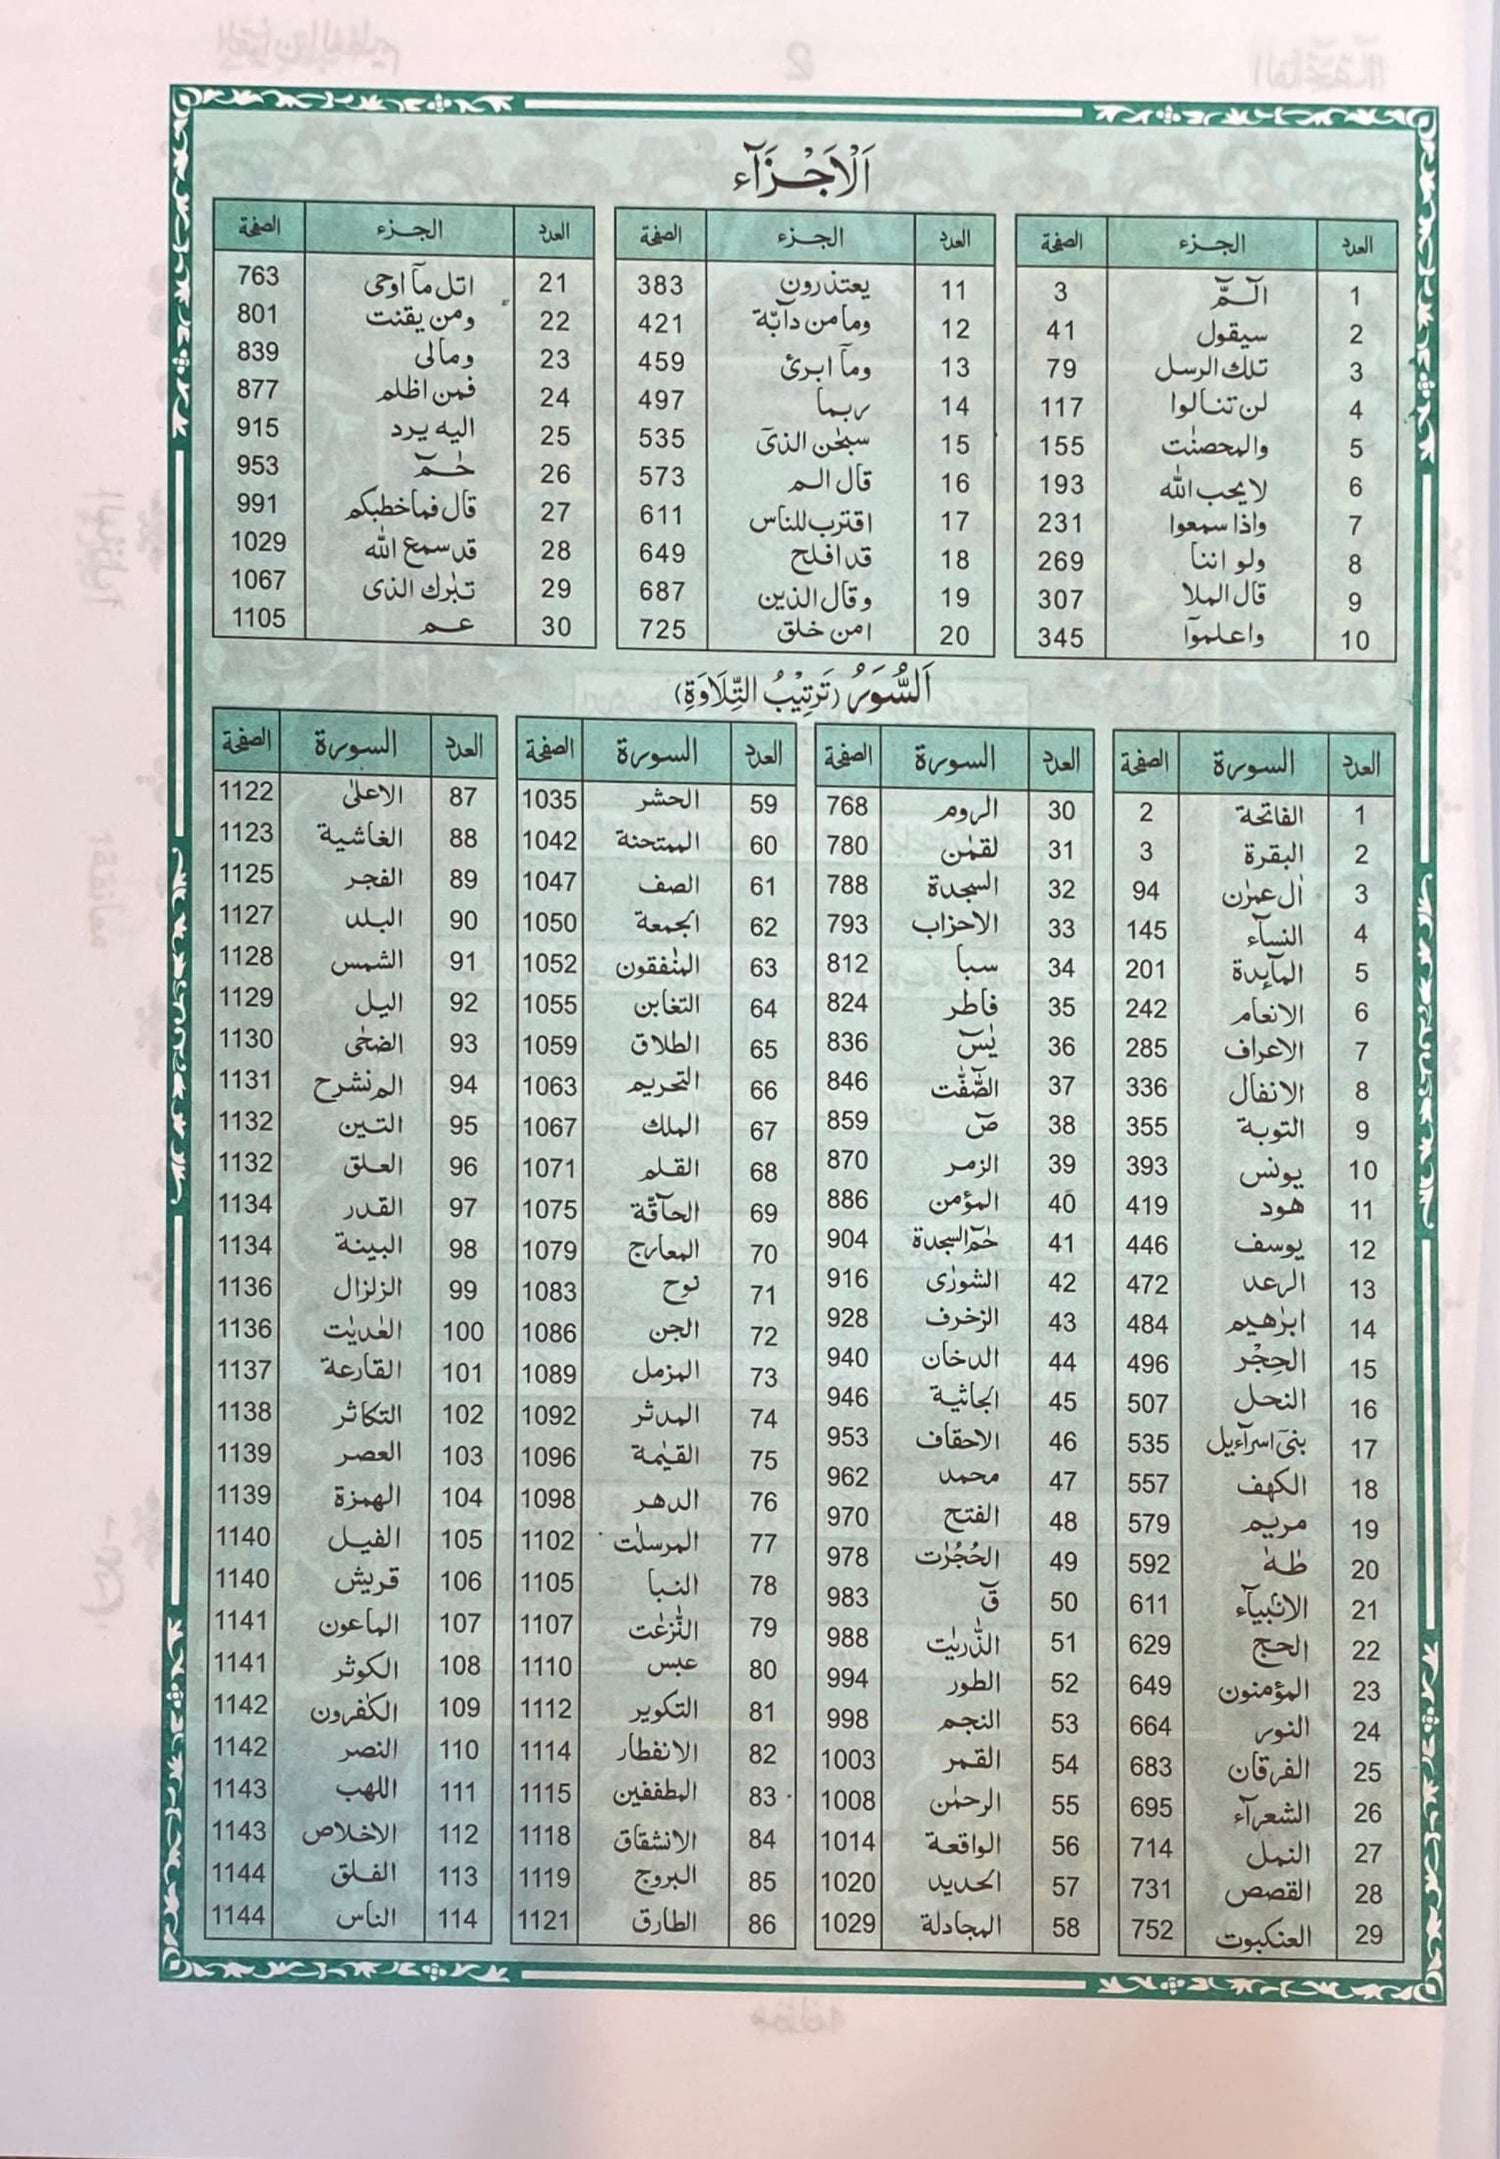 اَلْاَجْزَآء
العدد الجـزء الصفحة
1 الٓـمّٓ 3
2 سيقول 41
3 تلك الرسل 79
4 لن تنالوا 117
5 والمحصنٰت 155
6 لا يحب الله 193
7 واذا سمعوا 231
8 ولو اننا 269
9 قال الملا 307
10 واعلموٓا 345
العدد الجـزء الصفحة
11 يعتذرون 383
12 وما من دآبّة 421
13 ومآ ابرئ 459
14 ربما 497
15 سبحٰن الذىٓ 535
16 قال الم 573
17 اقترب للناس 611
18 قد افلح 649
19 وقال الذين 687
20 امن خلق 725
العدد الجـزء الصفحة
21 اتل مآ اوحى 763
22 ومن يقنت 801
23 ومالى 839
24 فمن اظلم 877
25 اليه يرد 915
26 حٰمٓ 953
27 قال فما خطبكم 991
28 قد سمع الله 1029
29 تبٰرك الذى 1067
30 عم 1105
اَلسُّوَرُ (تَرتِيْبُ التِّلَاوَةِ)
العدد السورة الصفحة
1 الفاتحة 2
2 البقرة 3
3 اٰل عمرٰن 94
4 النسآء 145
5 المآىدة 201
6 الانعام 242
7 الاعراف 285
8 الانفال 336
9 التوبة 355
10 يونس 393
11 هود 419
12 يوسف 446
13 الرعد 472
14 ابرٰهيم 484
15 الحِجْر 496
16 النحل 507
17 بنىٓ اسرآءيل 535
18 الكهف 557
19 مريم 579
20 طٰهٰ 592
21 الانبيآء 611
22 الحج 629
23 المؤمنون 649
24 النور 664
25 الفرقان 683
26 الشعرآء 695
27 النمل 714
28 القصص 731
29 العنكبوت 752
العدد السورة الصفحة
30 الروم 768
31 لقمٰن 780
32 السجدة 788
33 الاحزاب 793
34 سبا 812
35 فاطر 824
36 يٰسٓ 836
37 الصّٰٓفّٰت 846
38 صٓ 859
39 الزمر 870
40 المؤمن 886
41 حٰمٓ السجدة 904
42 الشورٰى 916
43 الزخرف 928
44 الدخان 940
45 الجاثية 946
46 الاحقاف 953
47 محمد 962
48 الفتح 970
49 الحُجُرٰت 978
50 قٓ 983
51 الذّٰريٰت 988
52 الطور 994
53 النجم 998
54 القمر 1003
55 الرحمٰن 1008
56 الواقعة 1014
57 الحديد 1020
58 المجادلة 1029
العدد السورة الصفحة
59 الحشر 1035
60 الممتحنة 1042
61 الصف 1047
62 الجمعة 1050
63 المنٰفقون 1052
64 التغابن 1055
65 الطلاق 1059
66 التحريم 1063
67 الملك 1067
68 القلم 1071
69 الحآقّة 1075
70 المعارج 1079
71 نوح 1083
72 الجن 1086
73 المزمل 1089
74 المدثر 1092
75 القيٰمة 1096
76 الدهر 1098
77 المرسلٰت 1102
78 النبا 1105
79 النّٰزعٰت 1107
80 عبس 1110
81 التكوير 1112
82 الانفطار 1114
83 المطففين 1115
84 الانشقاق 1118
85 البروج 1119
86 الطارق 1121
العدد السورة الصفحة
87 الاعلٰى 1122
88 الغاشية 1123
89 الفجر 1125
90 البلد 1127
91 الشمس 1128
92 اليل 1129
93 الضحٰى 1130
94 الم نشرح 1131
95 التين 1132
96 العلق 1132
97 القدر 1134
98 البينة 1134
99 الزلزال 1136
100 العٰديٰت 1136
101 القارعة 1137
102 التكاثر 1138
103 العصر 1139
104 الهمزة 1139
105 الفيل 1140
106 قريش 1140
107 الماعون 1141
108 الكوثر 1141
109 الكٰفرون 1142
110 النصر 1142
111 اللهب 1143
112 الاخلاص 1143
113 الفلق 1144
114 الناس 1144